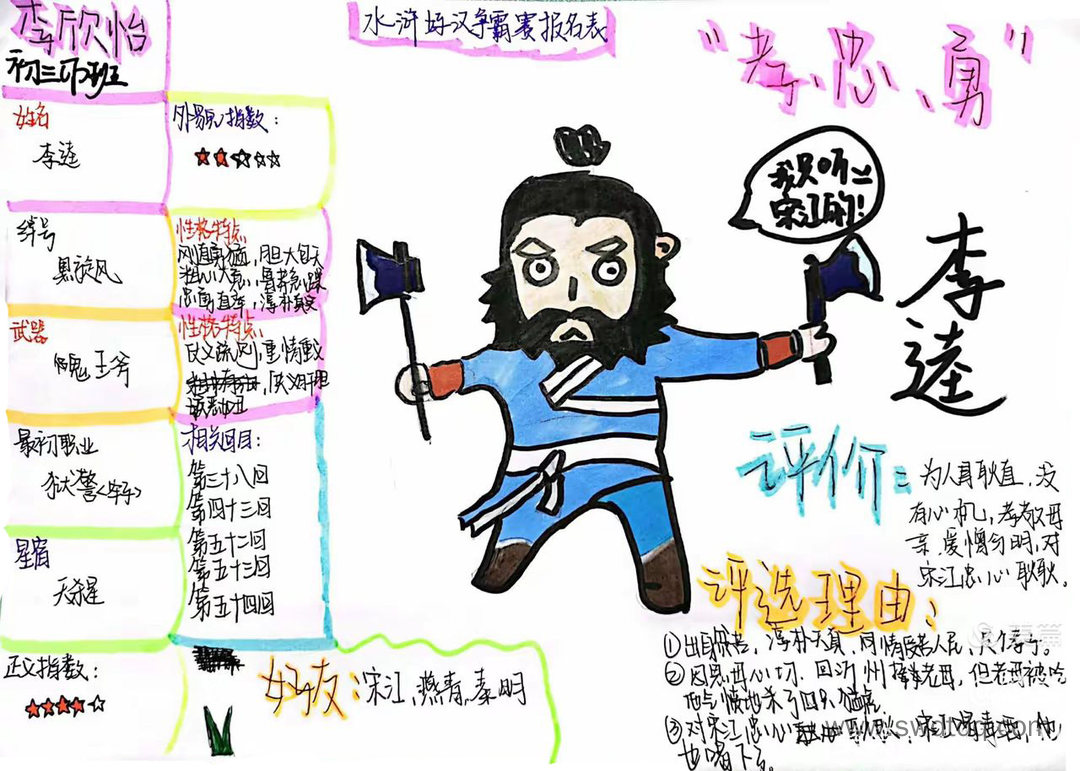 李欣怡
初三
水浒好汉争霸赛报名表
“孝、忠、勇”
姓名
李逵
外貌指数：
绰号
黑旋风
性格特点
刚直勇猛，胆大包天
粗心大意，鲁莽急躁
忠勇直率，淳朴真实
武器
王斧
性格特点
仗义疏财，重情重义
最初职业
狱警<牢子>
相关回目：
第三十八回
第四十三回
第五十二回
第五十三回
第五十四回
星宿
天杀星
正义指数：
好友：宋江，燕青，秦明
我只听
宋江的！
李逵
评价：为人耿直，没
有心机，孝敬母
亲，爱憎分明，对
宋江忠心耿耿。
评选理由：
①出身，淳朴天真，同情人民，
②因思母心切，回沂州接老母，但老母被吃
他气愤地杀了四只猛虎
③对宋江忠心，宋江喝毒酒，他
也喝下了。
美篇